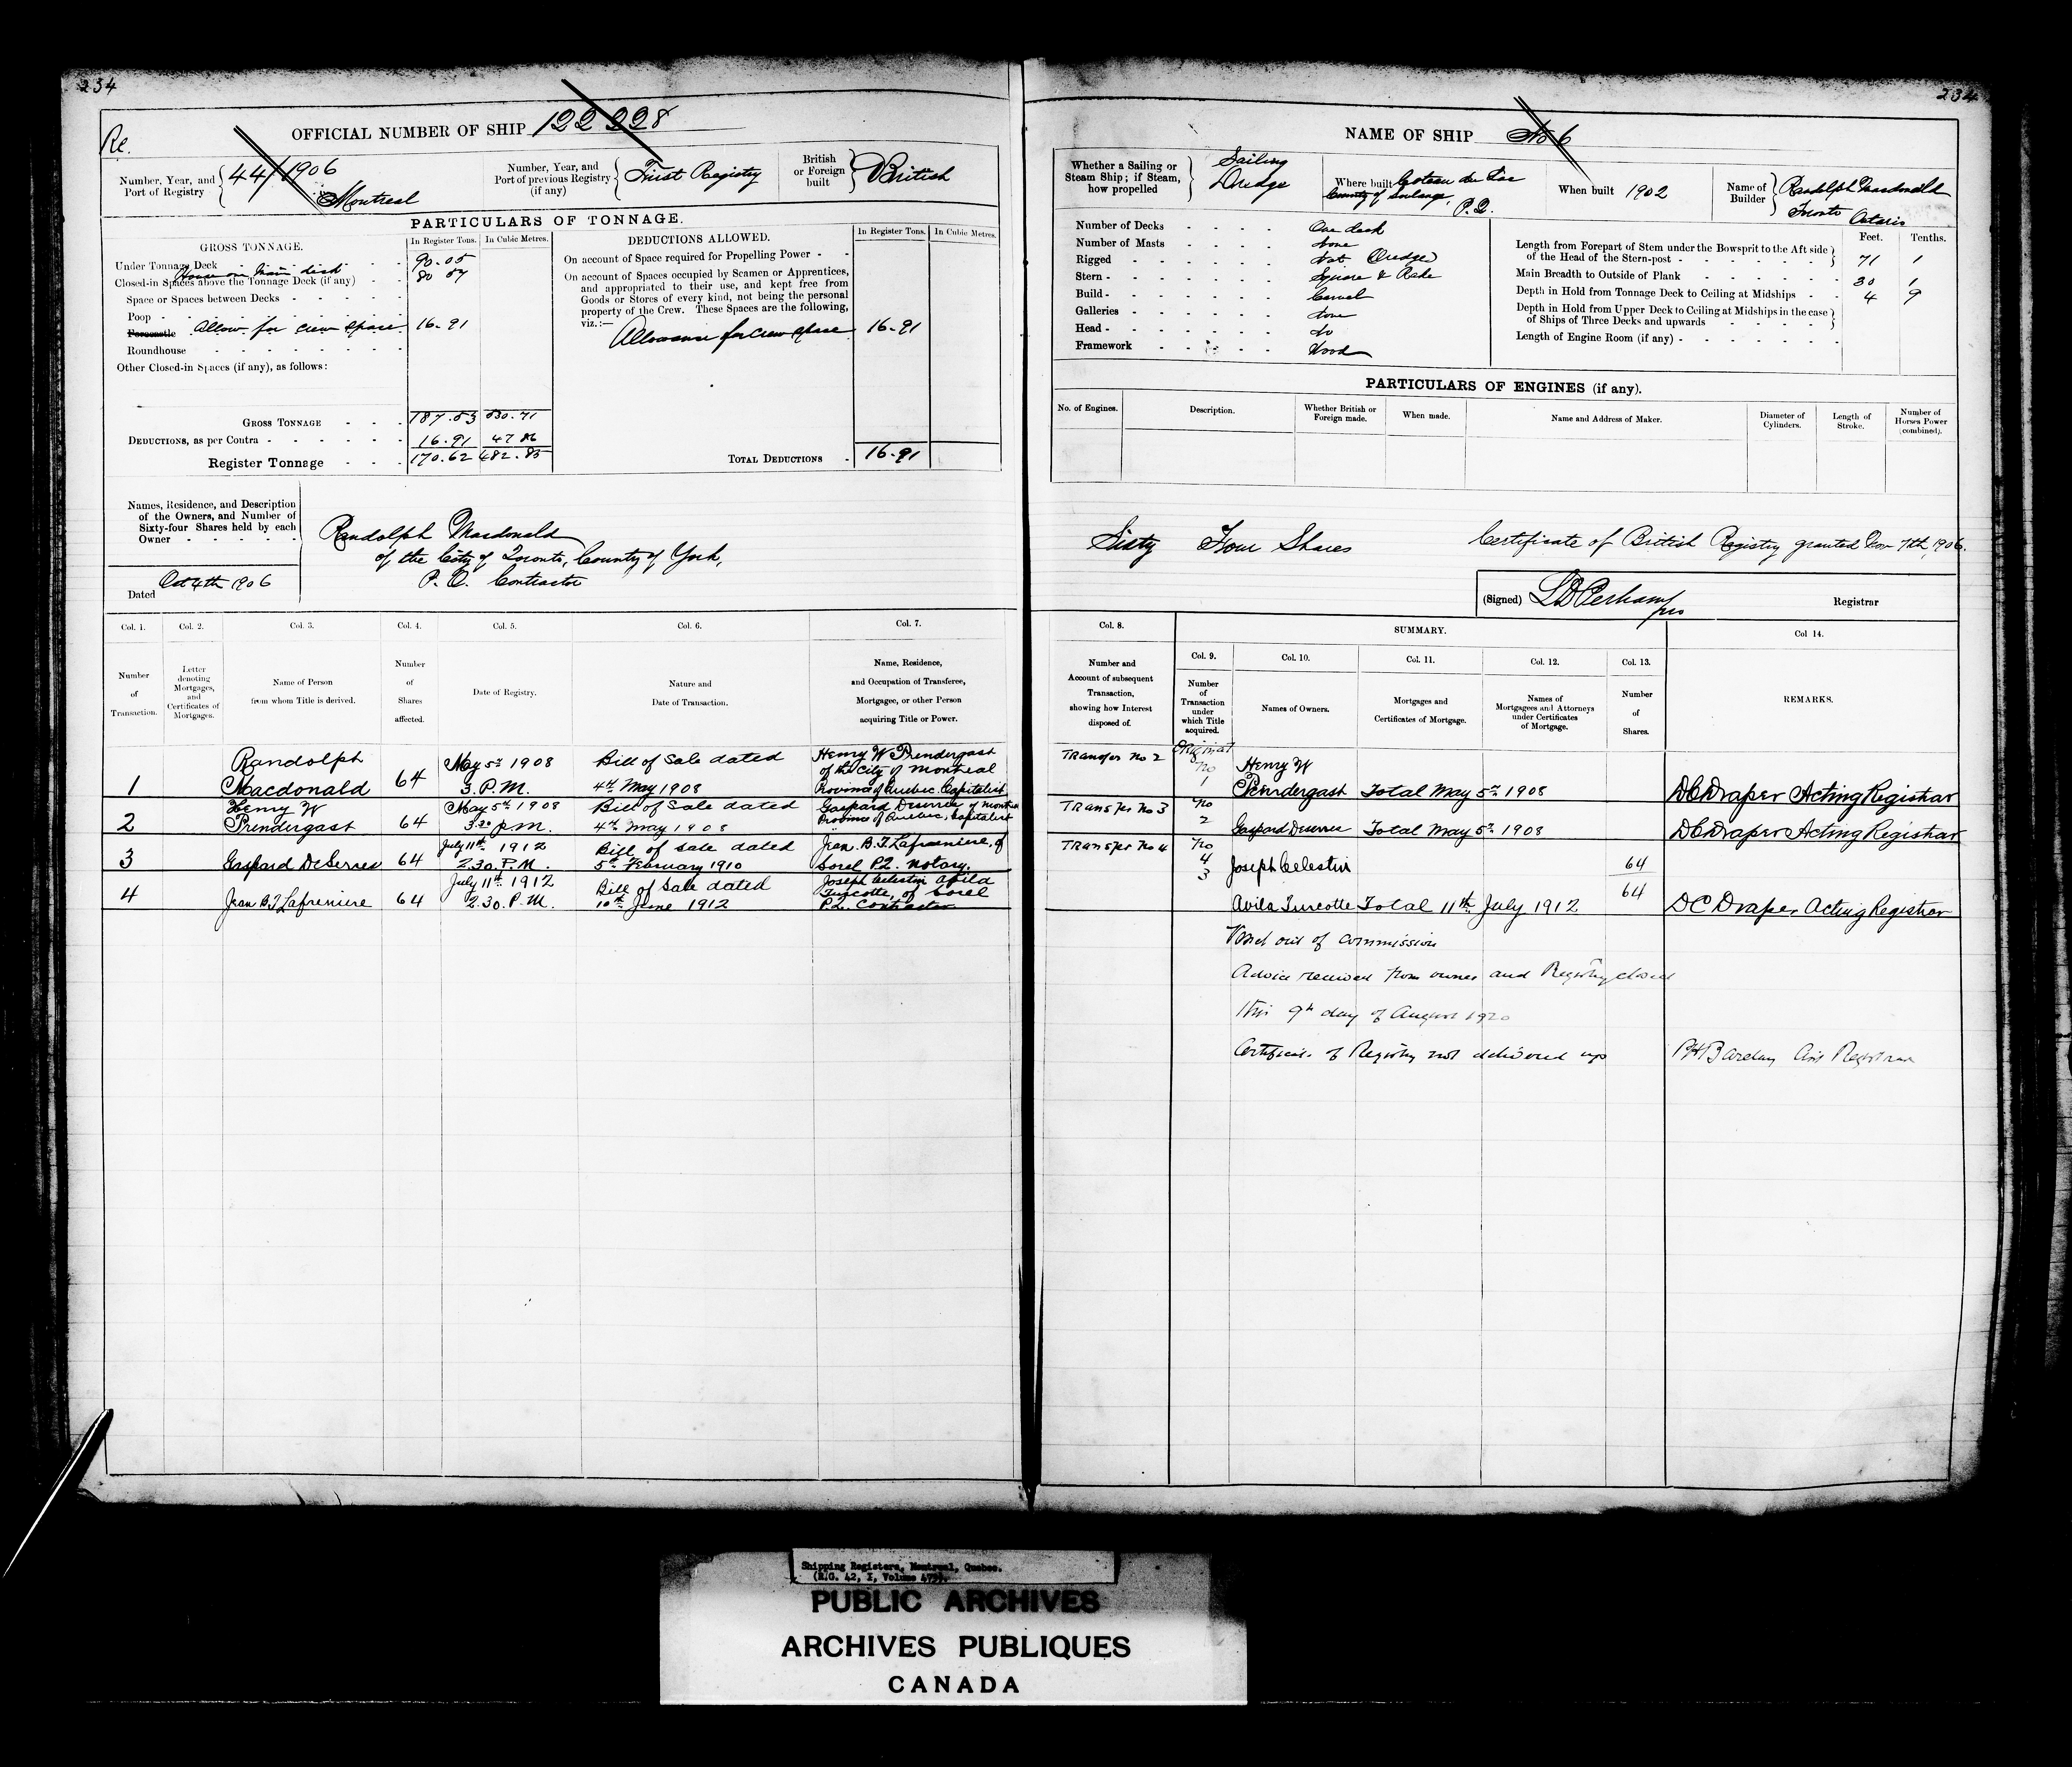 234
234
Re.
OFFICIAL NUMBER OF SHIP 122228
Number, Year, and
Port of Registry
44/1906
Montreal
Number, Year, and
Port of previous Registry
(if any)
First Registry
British
or Foreign
built
British
PARTICULARS OF TONNAGE.
GROSS TONNAGE.
In Register Tons.
In Cubic Metres.
Under Tonnage Deck 90.05
House on Main deck
Closed-in Spaces above the Tonnage Deck (if any) 80 57
Space or Spaces between Decks
Poop
Forecastle Allow. for crew space 16.91
Roundhouse
Other Closed-in Spaces (if any), as follows:
GROSS TONNAGE 187.53 530.71
DEDUCTIONS, as per Contra 16.91 47 86
Register Tonnage 170.62 482.85
DEDUCTIONS ALLOWED.
In Register Tons.
In Cubic Metres.
On account of Space required for Propelling Power
On account of Spaces occupied by Seamen or Apprentices,
and appropriated to their use, and kept free from
Goods or Stores of every kind, not being the personal
property of the Crew. These Spaces are the following,
viz.:—
Allowance for crew space 16.91
TOTAL DEDUCTIONS 16.91
Names, Residence, and Description
of the Owners, and Number of
Sixty-four Shares held by each
Owner
Dated Oct 4th 1906
Randolph Macdonald
of the City of Toronto, County of York,
P. O. Contractor
NAME OF SHIP No 6
Whether a Sailing or
Steam Ship; if Steam,
how propelled
Sailing
Dredge
Where built Coteau du Lac
County of Soulange,
P.Q.
When built 1902
Name of
Builder
Randolph Macdonald
Toronto Ontario
Number of Decks One deck
Number of Masts None
Rigged Not (Dredge)
Stern Square & Rake
Build Carvel
Galleries None
Head do
Framework Wood
Feet. Tenths.
Length from Forepart of Stem under the Bowsprit to the Aft side
of the Head of the Stern-post 71 1
Main Breadth to Outside of Plank 30 1
Depth in Hold from Tonnage Deck to Ceiling at Midships 4 9
Depth in Hold from Upper Deck to Ceiling at Midships in the case
of Ships of Three Decks and upwards
Length of Engine Room (if any)
PARTICULARS OF ENGINES (if any).
No. of Engines.
Description.
Whether British or
Foreign made.
When made.
Name and Address of Maker.
Diameter of
Cylinders.
Length of
Stroke.
Number of
Horses Power
(combined).
Sixty Four Shares
Certificate of British Registry granted Nov 7th, 1906.
(Signed) Registrar
Col. 1. Col. 2. Col. 3. Col. 4. Col. 5. Col. 6. Col. 7.
Number
of
Transaction.
Letter
denoting
Mortgages,
and
Certificates of
Mortgages.
Name of Person
from whom Title is derived.
Number
of
Shares
affected.
Date of Registry.
Nature and
Date of Transaction.
Name, Residence,
and Occupation of Transferee,
Mortgagee, or other Person
acquiring Title or Power.
Col. 8.
SUMMARY.
Col 14.
Col. 9. Col. 10. Col. 11. Col. 12. Col. 13.
Number and
Account of subsequent
Transaction,
showing how Interest
disposed of.
Number
of
Transaction
under
which Title
acquired.
Names of Owners.
Mortgages and
Certificates of Mortgage.
Names of
Mortgagees and Attorneys
under Certificates
of Mortgage.
Number
of
Shares.
REMARKS.
1
Randolph
Macdonald
64
May 5th 1908
3. P.M.
Bill of Sale dated
4th May 1908
Henry W Prendergast
of the City of Montreal
Province of Quebec. Capitalist
Transfer No 2
Original
No
1
Henry W
Prendergast Total May 5th 1908
DC Draper Acting Registrar
2
Henry W
Prendergast
64
May 5th 1908
3.30 p.m.
Bill of Sale dated
4th May 1908
Gaspard Deserres of Montreal
Province of Quebec, Capitalist
Transfer No 3
No
2
Gaspard Deserres Total May 5th 1908
DC Draper Acting Registrar
3
Gaspard DeSerres
64
July 11th 1912
2.30. P.M.
Bill of Sale dated
5th February 1910
Jean. B.T. Lafreniere, of
Sorel P.Q. Notary.
Transfer No 4
No
4
3
Joseph Celestin
64
4
Jean B.T Lafreniere
64
July 11th 1912
2.30. P.M.
Bill of Sale dated
10th June 1912
Joseph Celestin Avila
Turcotte, of Sorel
P.Q. Contractor
64
Avila Turcotte Total 11th July 1912
DC Draper Acting Registrar
Vessel out of commission
Advice received from owner and Registry closed
this 9th day of August 1920
Certificate of Registry not delivered up
Barclay Registrar
Shipping Registers, Montreal, Quebec.
(R.G. 42, I, Volume
PUBLIC ARCHIVES
ARCHIVES PUBLIQUES
CANADA